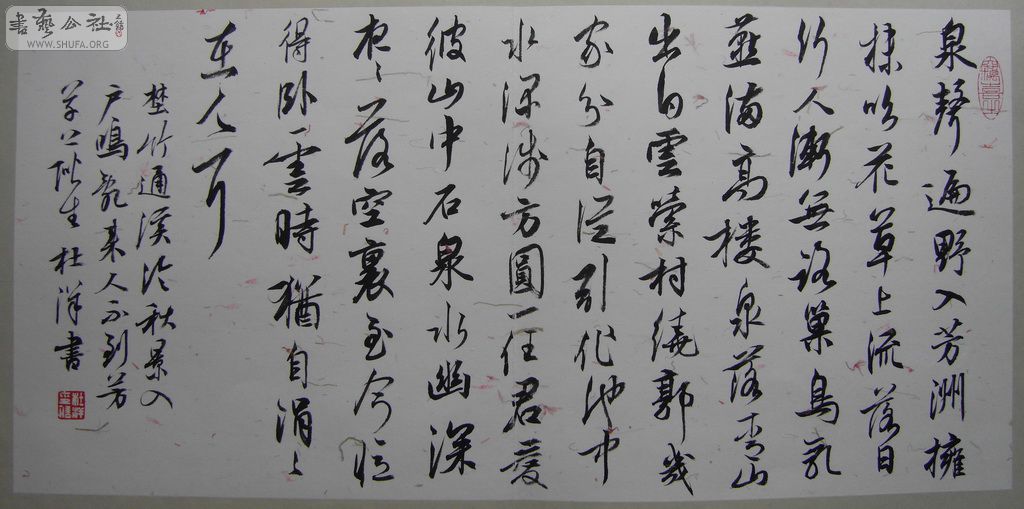 書藝公社
WWW.SHUFA.ORG
泉聲遍野入芳洲擁
沫吹花草上流落日
行人漸無路巢鳥乳
燕滿高楼泉落青山
出白雲縈村繞郭幾
家分自從引作池中
水深淺方圓一任君愛
彼山中石泉水幽深
夜夜落空裏至今憶
得臥雲時猶自涓涓
在人耳
埜竹通溪冷秋景入
戶鳴亂來人不到芳
草上階生杜洋書